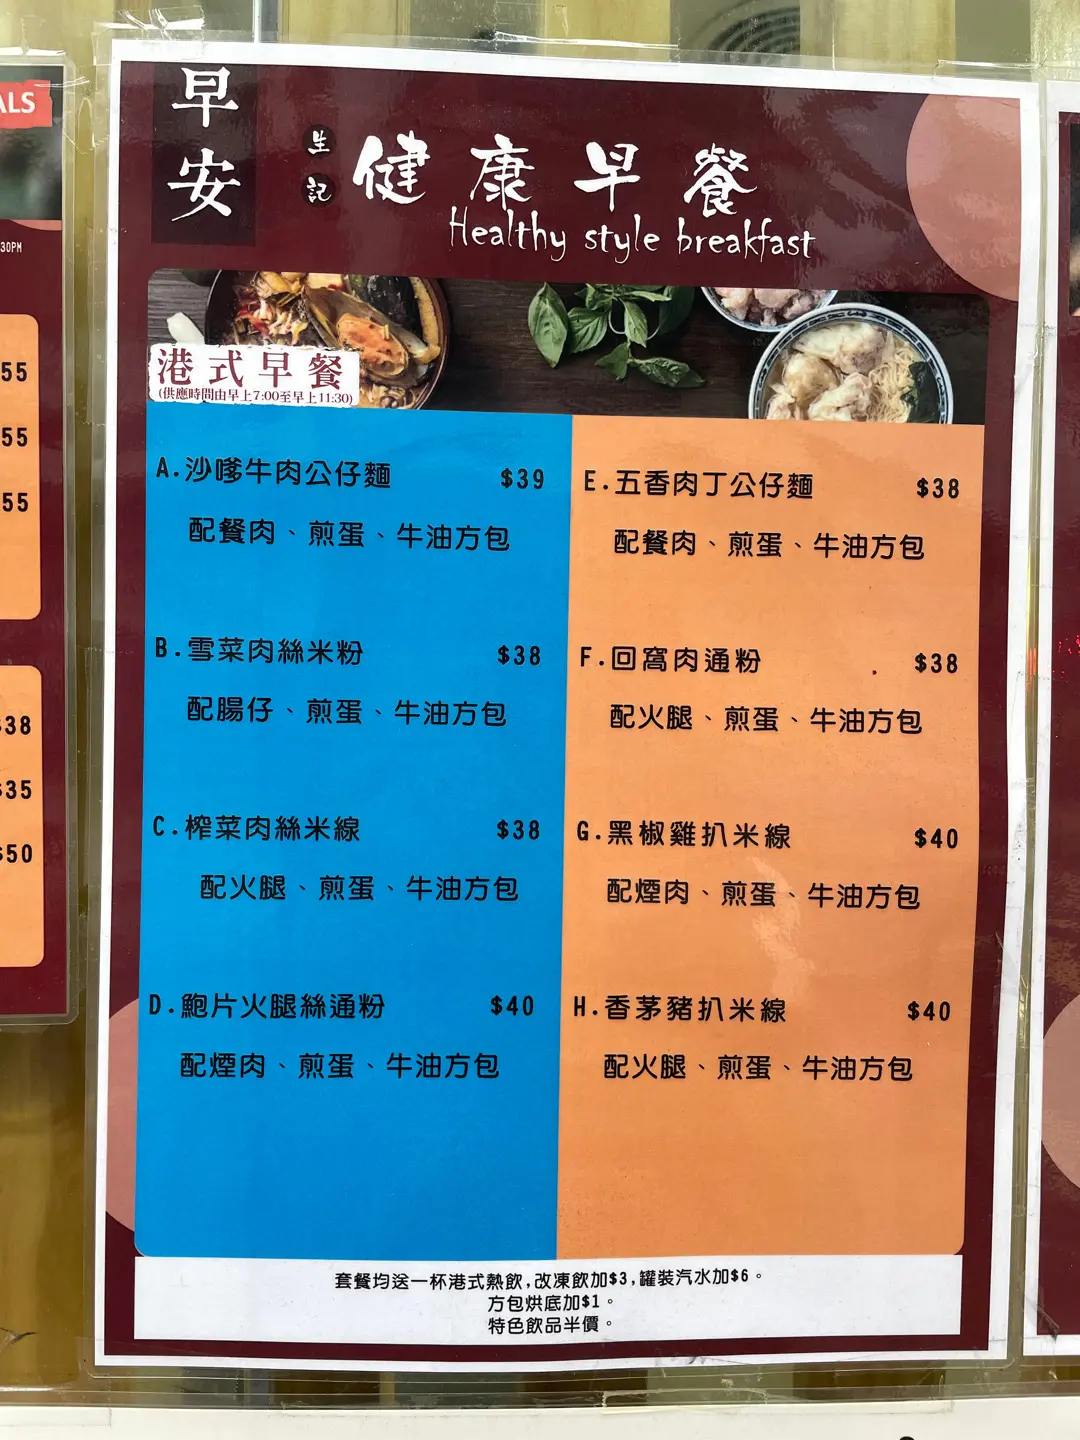 ALS
30PM
55
55
55
$38
$35
$50
早安
生記
健康早餐
Healthy style breakfast
港式早餐
(供應時間由早上7:00至早上11:30)
A.沙嗲牛肉公仔麵 $39
配餐肉、煎蛋、牛油方包
B.雪菜肉絲米粉 $38
配腸仔、煎蛋、牛油方包
C.榨菜肉絲米線 $38
配火腿、煎蛋、牛油方包
D.鮑片火腿絲通粉 $40
配煙肉、煎蛋、牛油方包
E.五香肉丁公仔麵 $38
配餐肉、煎蛋、牛油方包
F.回窩肉通粉 $38
配火腿、煎蛋、牛油方包
G.黑椒雞扒米線 $40
配煙肉、煎蛋、牛油方包
H.香茅豬扒米線 $40
配火腿、煎蛋、牛油方包
套餐均送一杯港式熱飲,改凍飲加$3,罐裝汽水加$6。
方包烘底加$1。
特色飲品半價。